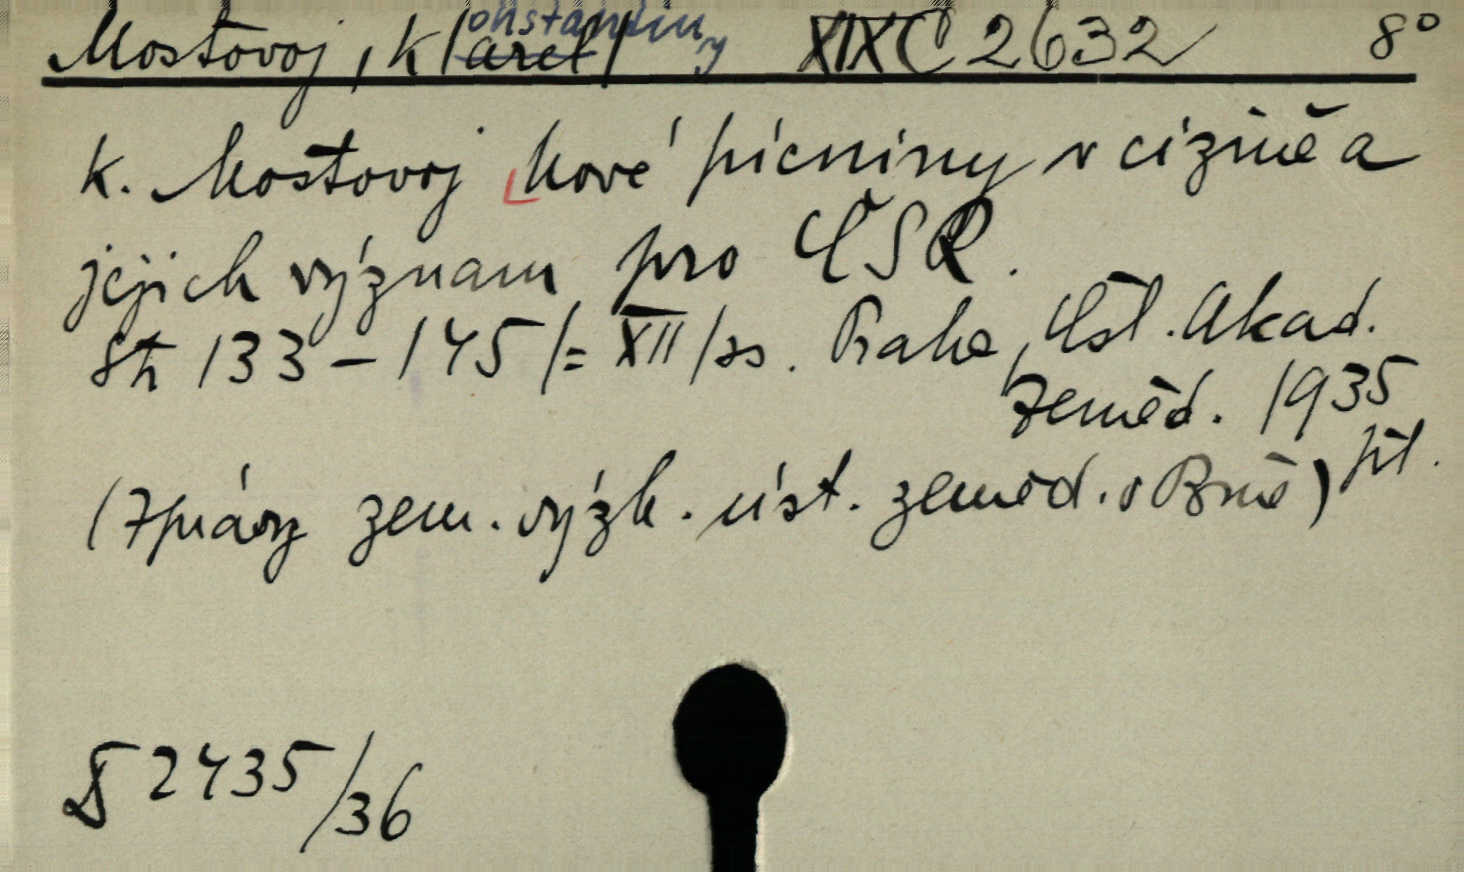 Mostovoj, K/onstantin/ XIX C 2632 8°
K. Mostovoj Nové pícniny v cizině a
jejich význam pro ČSR.
Str 133-145 /= XII/ss. Praha, Čsl. Akad.
Zeměd. 1935
příl.
(Zprávy zem. výzk. úst. zeměd. v Brně)
2435/36